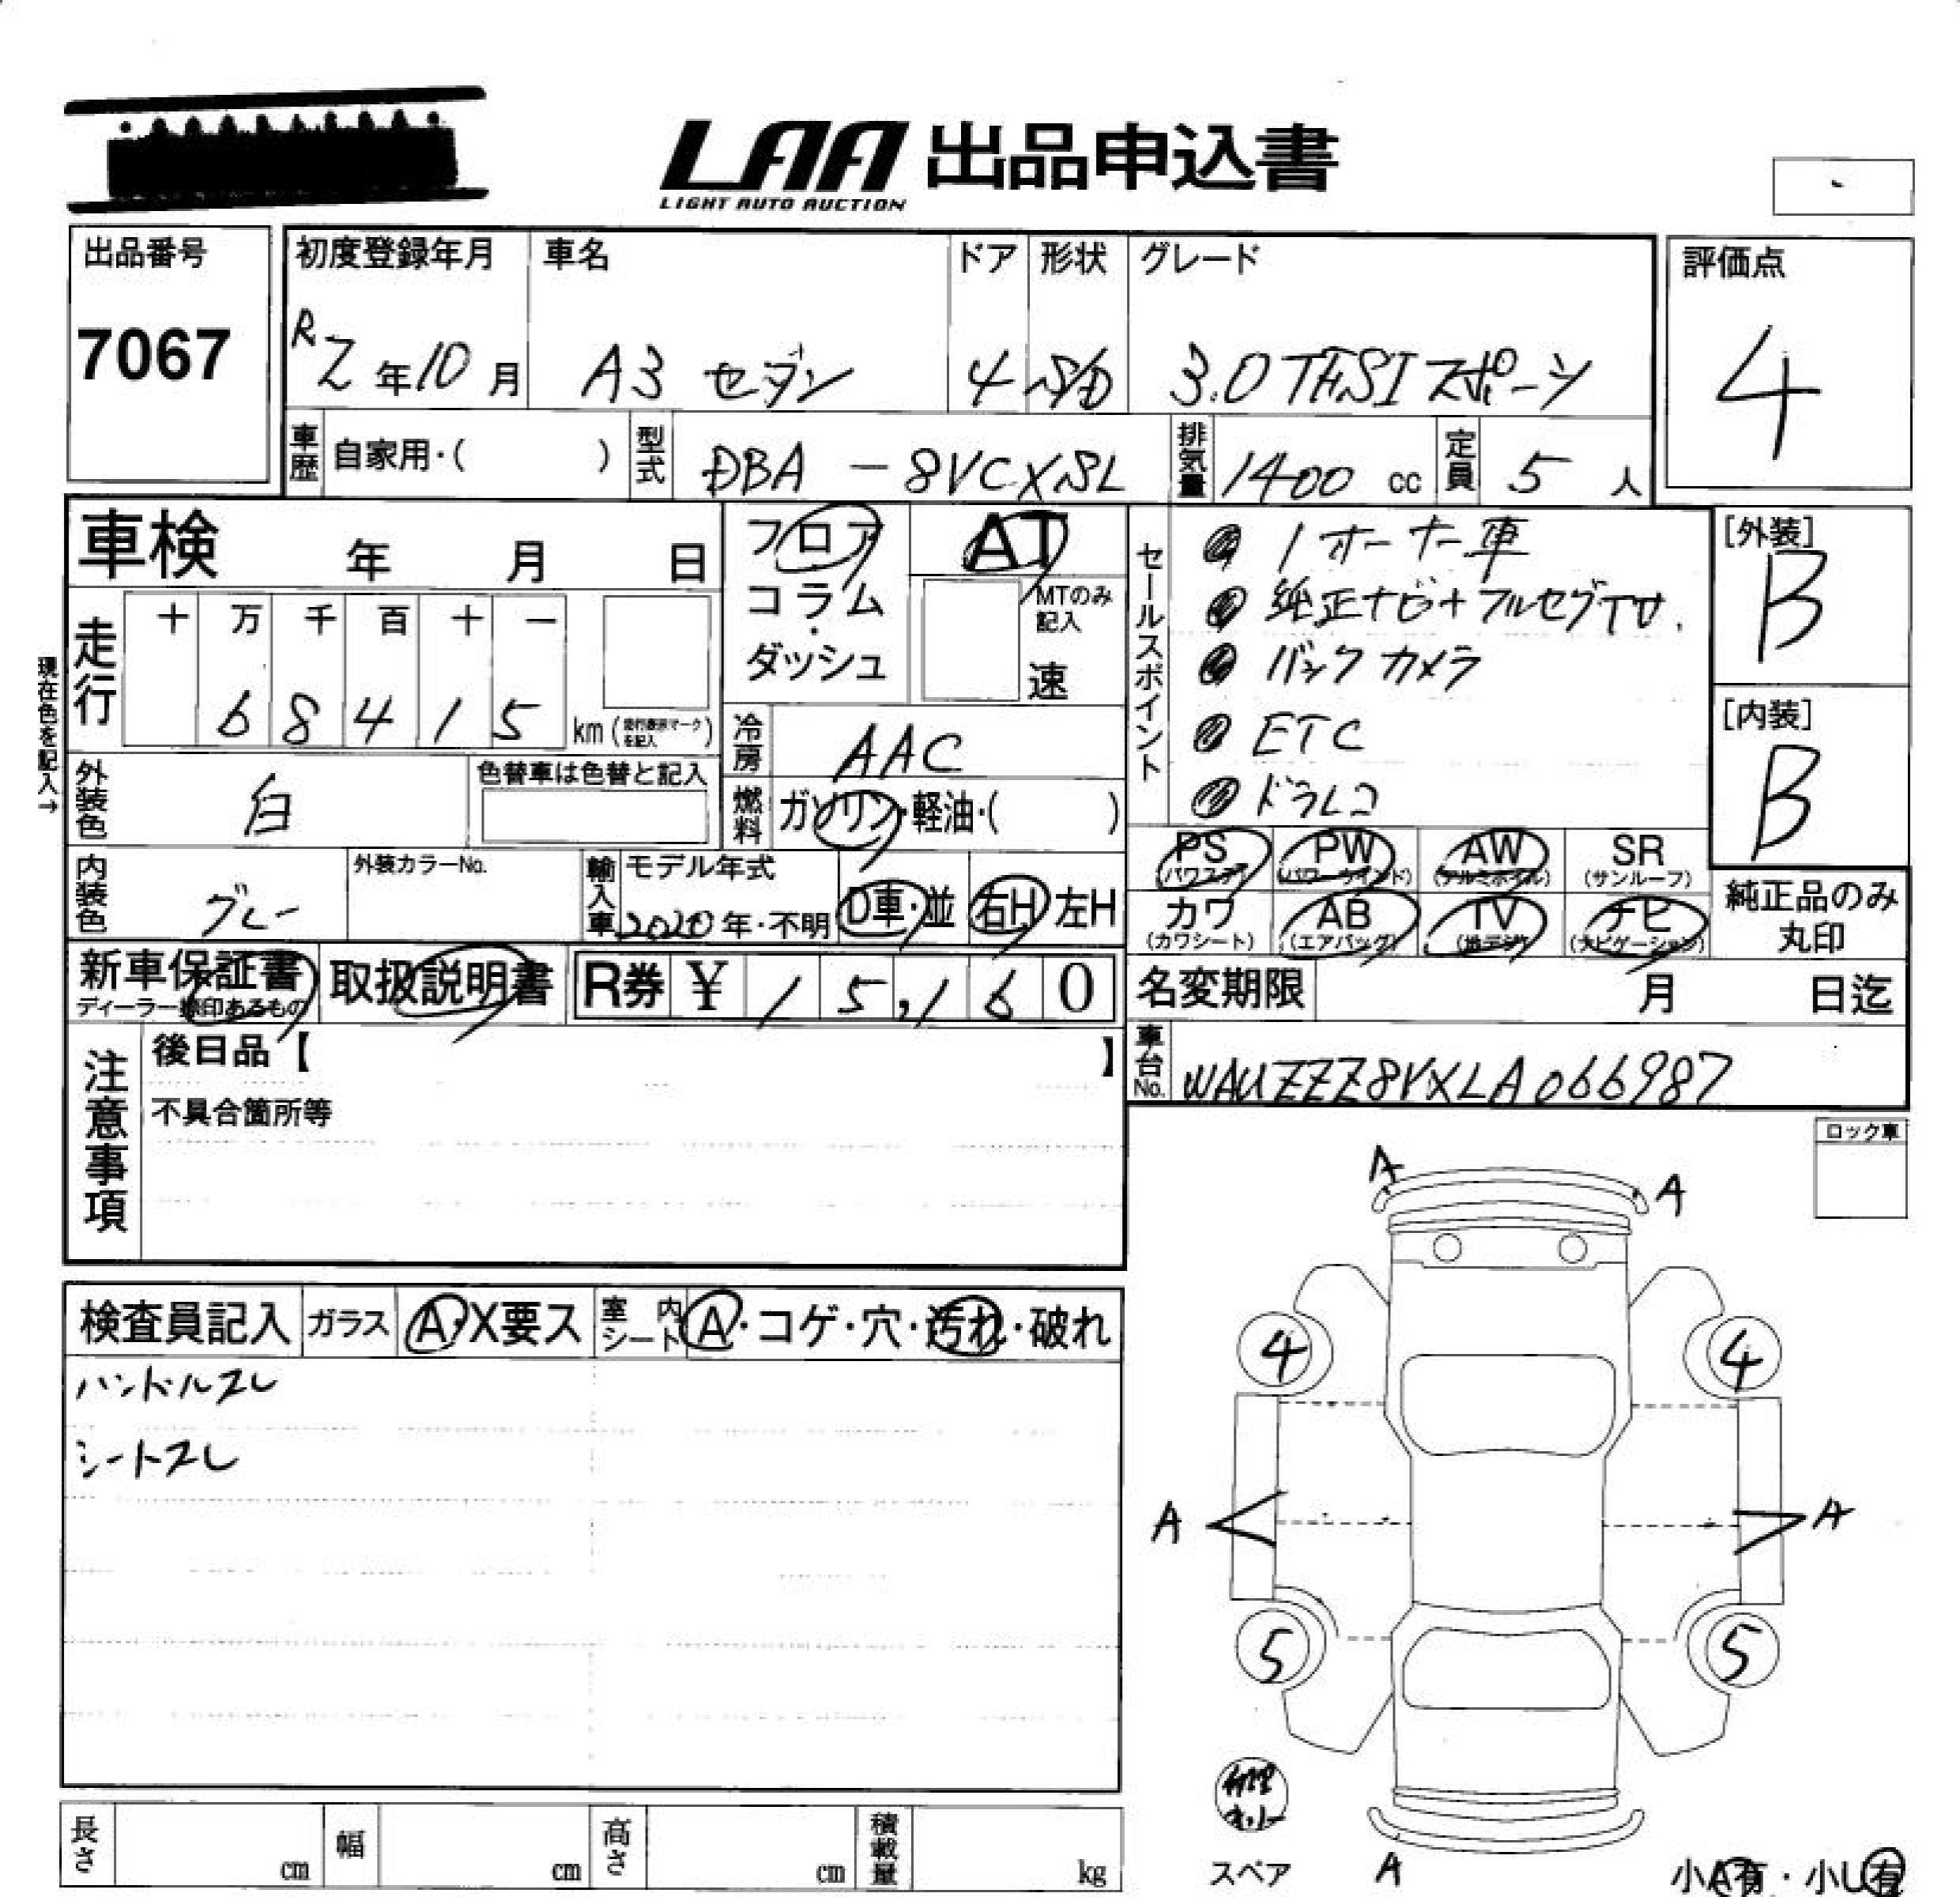 LAA 出品申込書
LIGHT AUTO AUCTION
出品番号
7067
初度登録年月 車名 ドア 形状 グレード
R2年10月 A3 セダン 4 S/D 3.0TFSIスポーツ
評価点
4
車歴 自家用・( ) 型式 DBA-8VCXSL 排気量 1400 cc 定員 5 人
車検 年 月 日
フロア コラム・ダッシュ
AT
MTのみ記入
速
現在色を記入→
走行 十 万 千 百 十 一
6 8 4 1 5 km (走行表示マークを記入)
冷房 AAC
燃料 ガソリン・軽油・( )
セールスポイント
1オーナー車
純正ナビ+フルセグTV.
バックカメラ
ETC
ドラレコ
[外装]
B
[内装]
B
外装色 白 色替車は色替と記入
内装色 グレー 外装カラーNo.
輸入車 モデル年式
2020年・不明 D車・並 右H 左H
PS (パワステ) PW (パワーウインド) AW (アルミホイル) SR (サンルーフ)
カワ (カワシート) AB (エアバッグ) TV (地デジ) ナビ (ナビゲーション)
純正品のみ丸印
新車保証書 ディーラー捺印あるもの
取扱説明書 R券 ¥ 15,160
名変期限 月 日迄
車台No. WAUZZZ8VXLA066987
注意事項
後日品【 】
不具合箇所等
ロック車
検査員記入 ガラス A・X要ス 室内シート A・コゲ・穴・汚れ・破れ
ハンドルスレ
シートスレ
A A
4 4
A A
5 5
スペア
A
小A有・小U有
長さ cm 幅 cm 高さ cm 積載量 kg